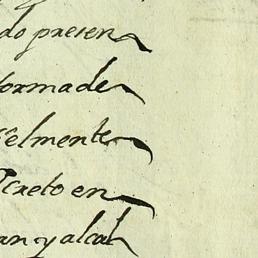 do presen
formade
elmente
creto en
an y alcal